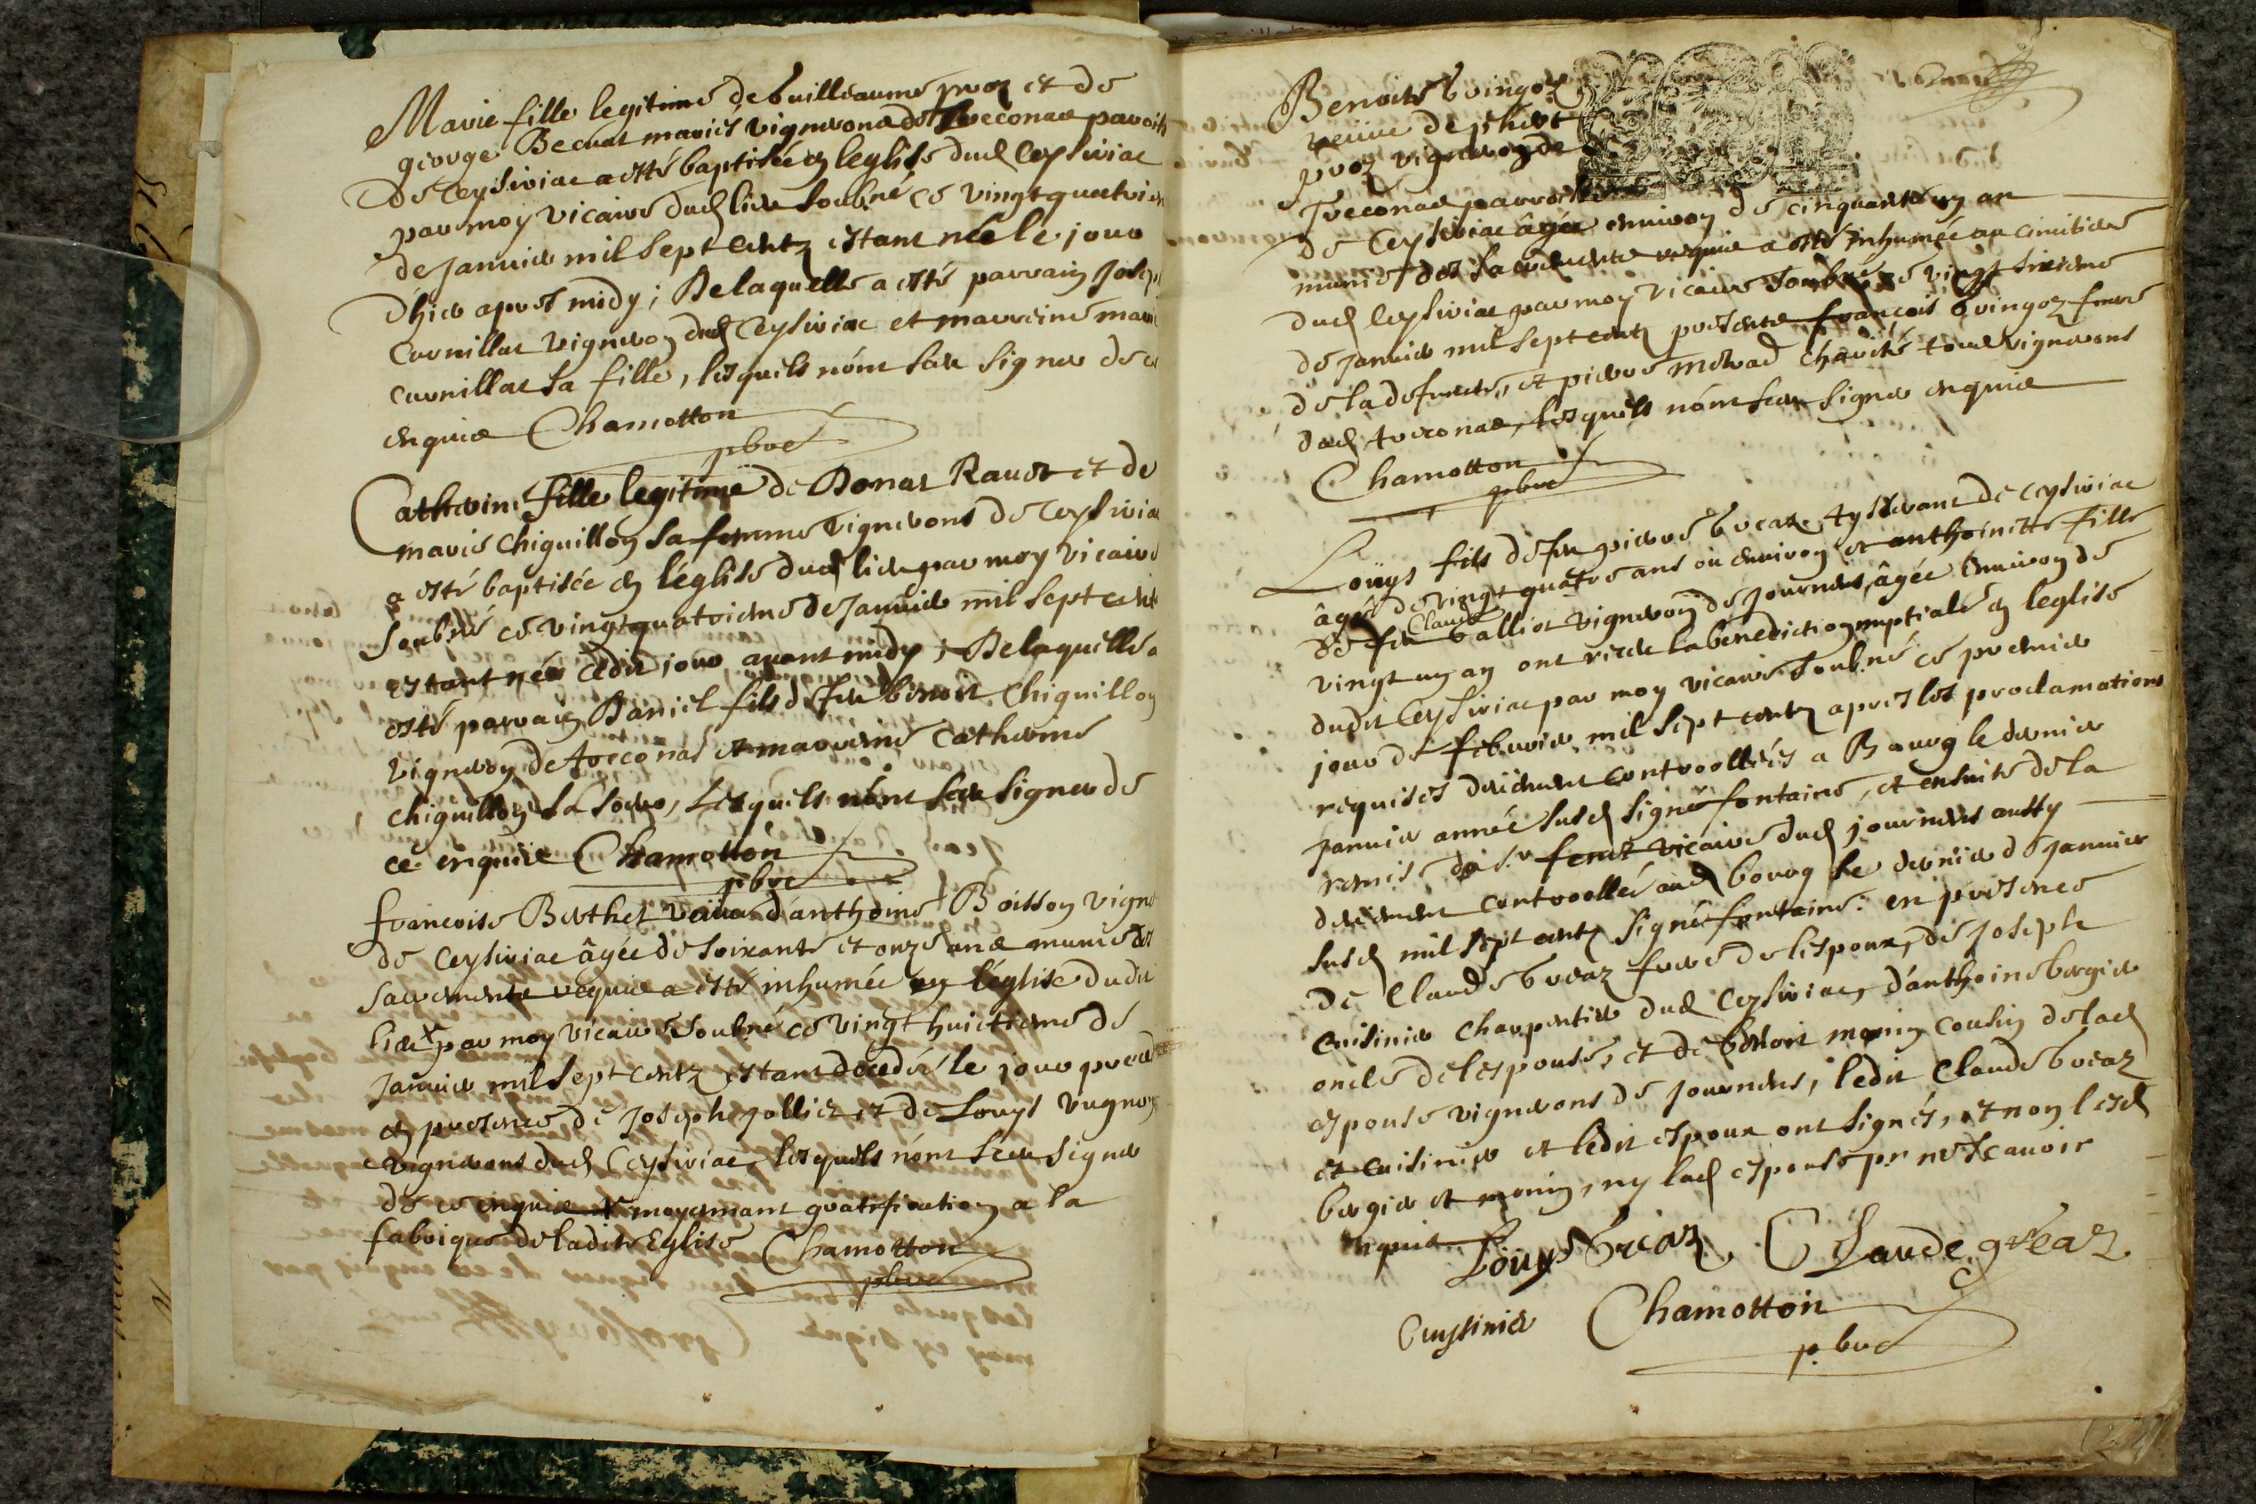 Marie fille legitime de Guilleaume proz et de
george Becuat mariés vignerons de Treconas paroiss
de Ceysiriac a esté baptisée en leglise dud Ceysiriac
par moy vicaire dud lieu soubné ce vingt quatrie
de Januier mil sept centz estant née le jour
d'hier apres midy; De laquelle a esté parrain Josep
Curnillat vigneron dud Ceysiriac et marreine marie
curnillat sa fille, lesquels n'ont sceu signer de ce
enquis Chamotton
pbre
Catherine fille legitime de Donat Rauot et de
marie chiquillon sa femme vignerons de Ceysiria
a esté baptisée en l'église dud lieu par moy vicaire
soubné ce vingt quatrieme de Januier mil sept centz
estant née cedit jour auant midy; De laquelle a
esté parrain Daniel fils de feu benoit chiquillon
vigneron de treconas et marreine Catherine
chiquillon sa soeur, Lesquels n'ont sceu signer de
ce enquis Chamotton
pbre
francoise Berthet veuue d'anthoine Boisson vigne
de Ceysiriac âgée de soixante et onze ans munie des
sacrements requis a esté inhumée en l'église dudit
lieu par moy vicaire soubné ce vingt huictieme de
Januier mil sept centz estant decedée le jour preced
en presence de Joseph jolliet et de Louys vugnon
vignerons dud Ceysiriac, lesquels n'ont sceu signer
de ce enquis moyennant gratification a la
fabrique de ladite Eglise Chamotton
pbre
Benoite Gringoz
veuue de phibert
proz vigneron de
Treconas parroisse
de Ceysiriac âgée enuiron de cinquante un an
munie des sacrements requis a esté inhumée au cimitiere
dud Ceysiriac par moy vicaire soubné ce vingt sixieme
de Januier mil sept centz presents françois Gringoz frere
de la defuncte, et pierre charité tous vignerons
dud treconas, lesquels n'ont sceu signer enquis
Chamotton
pbre
Loüys fils de feu pierre Greaz tysserant de Ceysiriac
âgé de vingt quatre ans ou enuiron et anthoinette fille
Claude
de feu Galliot vigneron de Journens, âgée enuiron de
vingt un an ont receu la benediction nuptiale en leglise
dudit Ceysiriac par moy vicaire soubné ce premier
jour de februier mil sept centz apres les proclamations
requises deüement controollées a Bourg le dernier
januier année susd signé fontaine, et ensuite de la
remise du sr feruet vicaire dud journens aussy
deüement controollée aud bourg le dernier de januier
susd mil sept centz signé fontaine: en presence
de Claude Greaz frere de l'espoux, de Joseph
cuisinier charpentier dud Ceysiriac, d'anthoine bergier
oncle de lespouse, et de benoit monin cousin de lad
espouse vignerons de journens, ledit Claude Greaz
et cuisinier et ledit espoux ont signés, et non lesd
bergier et monin, ny lad espouse pr ne scauoir
enquis Loüys Greaz. Claude greaz
Cuysinier Chamotton
p.bre